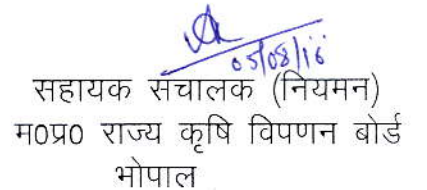 05/08/16
सहायक संचालक (नियमन)
म0प्र0 राज्य कृषि विपणन बोर्ड
भोपाल